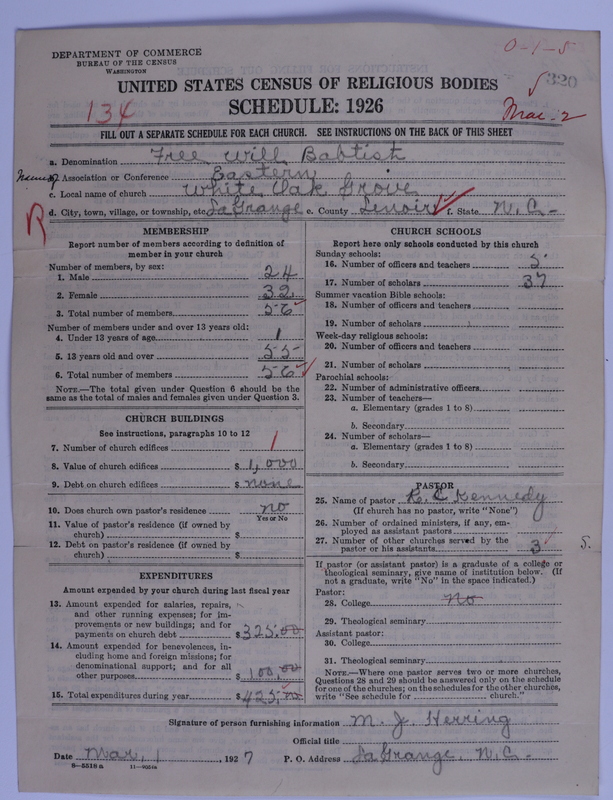 DEPARTMENT OF COMMERCE
BUREAU OF THE CENSUS
WASHINGTON
0-1-5
320
UNITED STATES CENSUS OF RELIGIOUS BODIES
134
SCHEDULE: 1926
Mar. 2
FILL OUT A SEPARATE SCHEDULE FOR EACH CHURCH. SEE INSTRUCTIONS ON THE BACK OF THIS SHEET
a. Denomination Free Will Babtish
b. Association or Conference Eastern
c. Local name of church White Oak Grove
R
d. City, town, village, or township, etc. LaGrange e. County Lenoir f. State N.C.
MEMBERSHIP
Report number of members according to definition of
member in your church
Number of members, by sex:
1. Male 24
2. Female 32
3. Total number of members 56
Number of members under and over 13 years old:
4. Under 13 years of age 1
5. 13 years old and over 55
6. Total number of members 56
NOTE.—The total given under Question 6 should be the
same as the total of males and females given under Question 3.
CHURCH BUILDINGS
See instructions, paragraphs 10 to 12
7. Number of church edifices 1
8. Value of church edifices $ 1,000
9. Debt on church edifices $ none
10. Does church own pastor's residence no
Yes or No
11. Value of pastor's residence (if owned by
church) $
12. Debt on pastor's residence (if owned by
church) $
EXPENDITURES
Amount expended by your church during last fiscal year
13. Amount expended for salaries, repairs,
and other running expenses; for im-
provements or new buildings; and for
payments on church debt $ 325.00
14. Amount expended for benevolences, in-
cluding home and foreign missions; for
denominational support; and for all
other purposes $ 100.00
15. Total expenditures during year $ 425.00
CHURCH SCHOOLS
Report here only schools conducted by this church
Sunday schools:
16. Number of officers and teachers 5
17. Number of scholars 37
Summer vacation Bible schools:
18. Number of officers and teachers
19. Number of scholars
Week-day religious schools:
20. Number of officers and teachers
21. Number of scholars
Parochial schools:
22. Number of administrative officers
23. Number of teachers—
a. Elementary (grades 1 to 8)
b. Secondary
24. Number of scholars—
a. Elementary (grades 1 to 8)
b. Secondary
PASTOR
25. Name of pastor R. C. Kennedy
(If church has no pastor, write "None")
26. Number of ordained ministers, if any, em-
ployed as assistant pastors
27. Number of other churches served by the
pastor or his assistants 3
5.
If pastor (or assistant pastor) is a graduate of a college or
theological seminary, give name of institution below. (If
not a graduate, write "No" in the space indicated.)
Pastor:
28. College no
29. Theological seminary
Assistant pastor:
30. College
31. Theological seminary
NOTE.—Where one pastor serves two or more churches,
Questions 28 and 29 should be answered only on the schedule
for one of the churches; on the schedules for the other churches,
write "See schedule for church."
Signature of person furnishing information M. J. Herring
Official title
Date Mar, 1 1927 P. O. Address LaGrange, N.C.
8—5518a